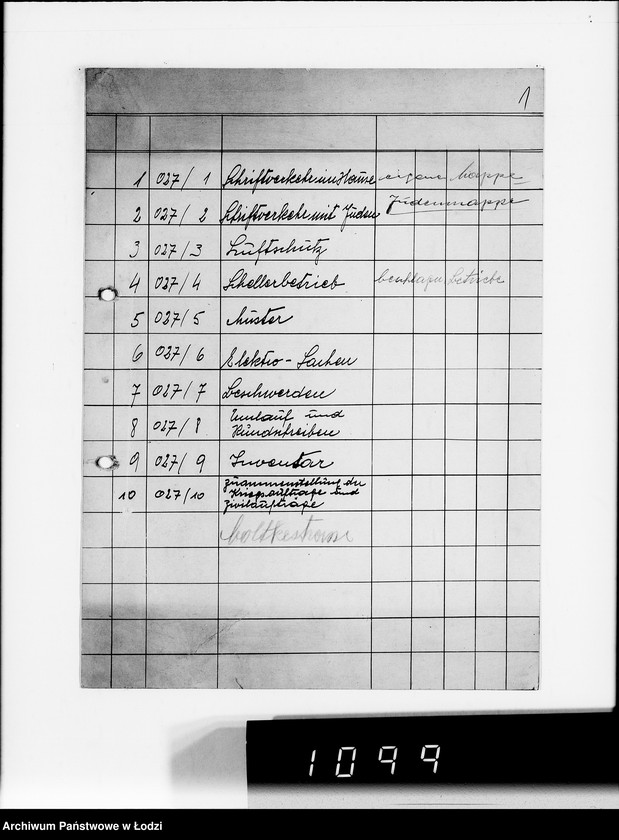 1
1 027/1 Schriftverkehr im Hause eigene Mappe
2 027/2 Schriftverkehr mit Juden Judenmappe
3 027/3 Luftschutz
4 027/4 Schellerbetrieb Betriebe
5 027/5 Muster
6 027/6 Elektro-Sachen
7 027/7 Beschwerden
8 027/8 Umlauf und
Rundschreiben
9 027/9 Inventar
10 027/10 Zusammenstellung der
Kriegsaufträge und
Zivilaufträge
Moltkestrasse
1099
Archiwum Państwowe w Łodzi